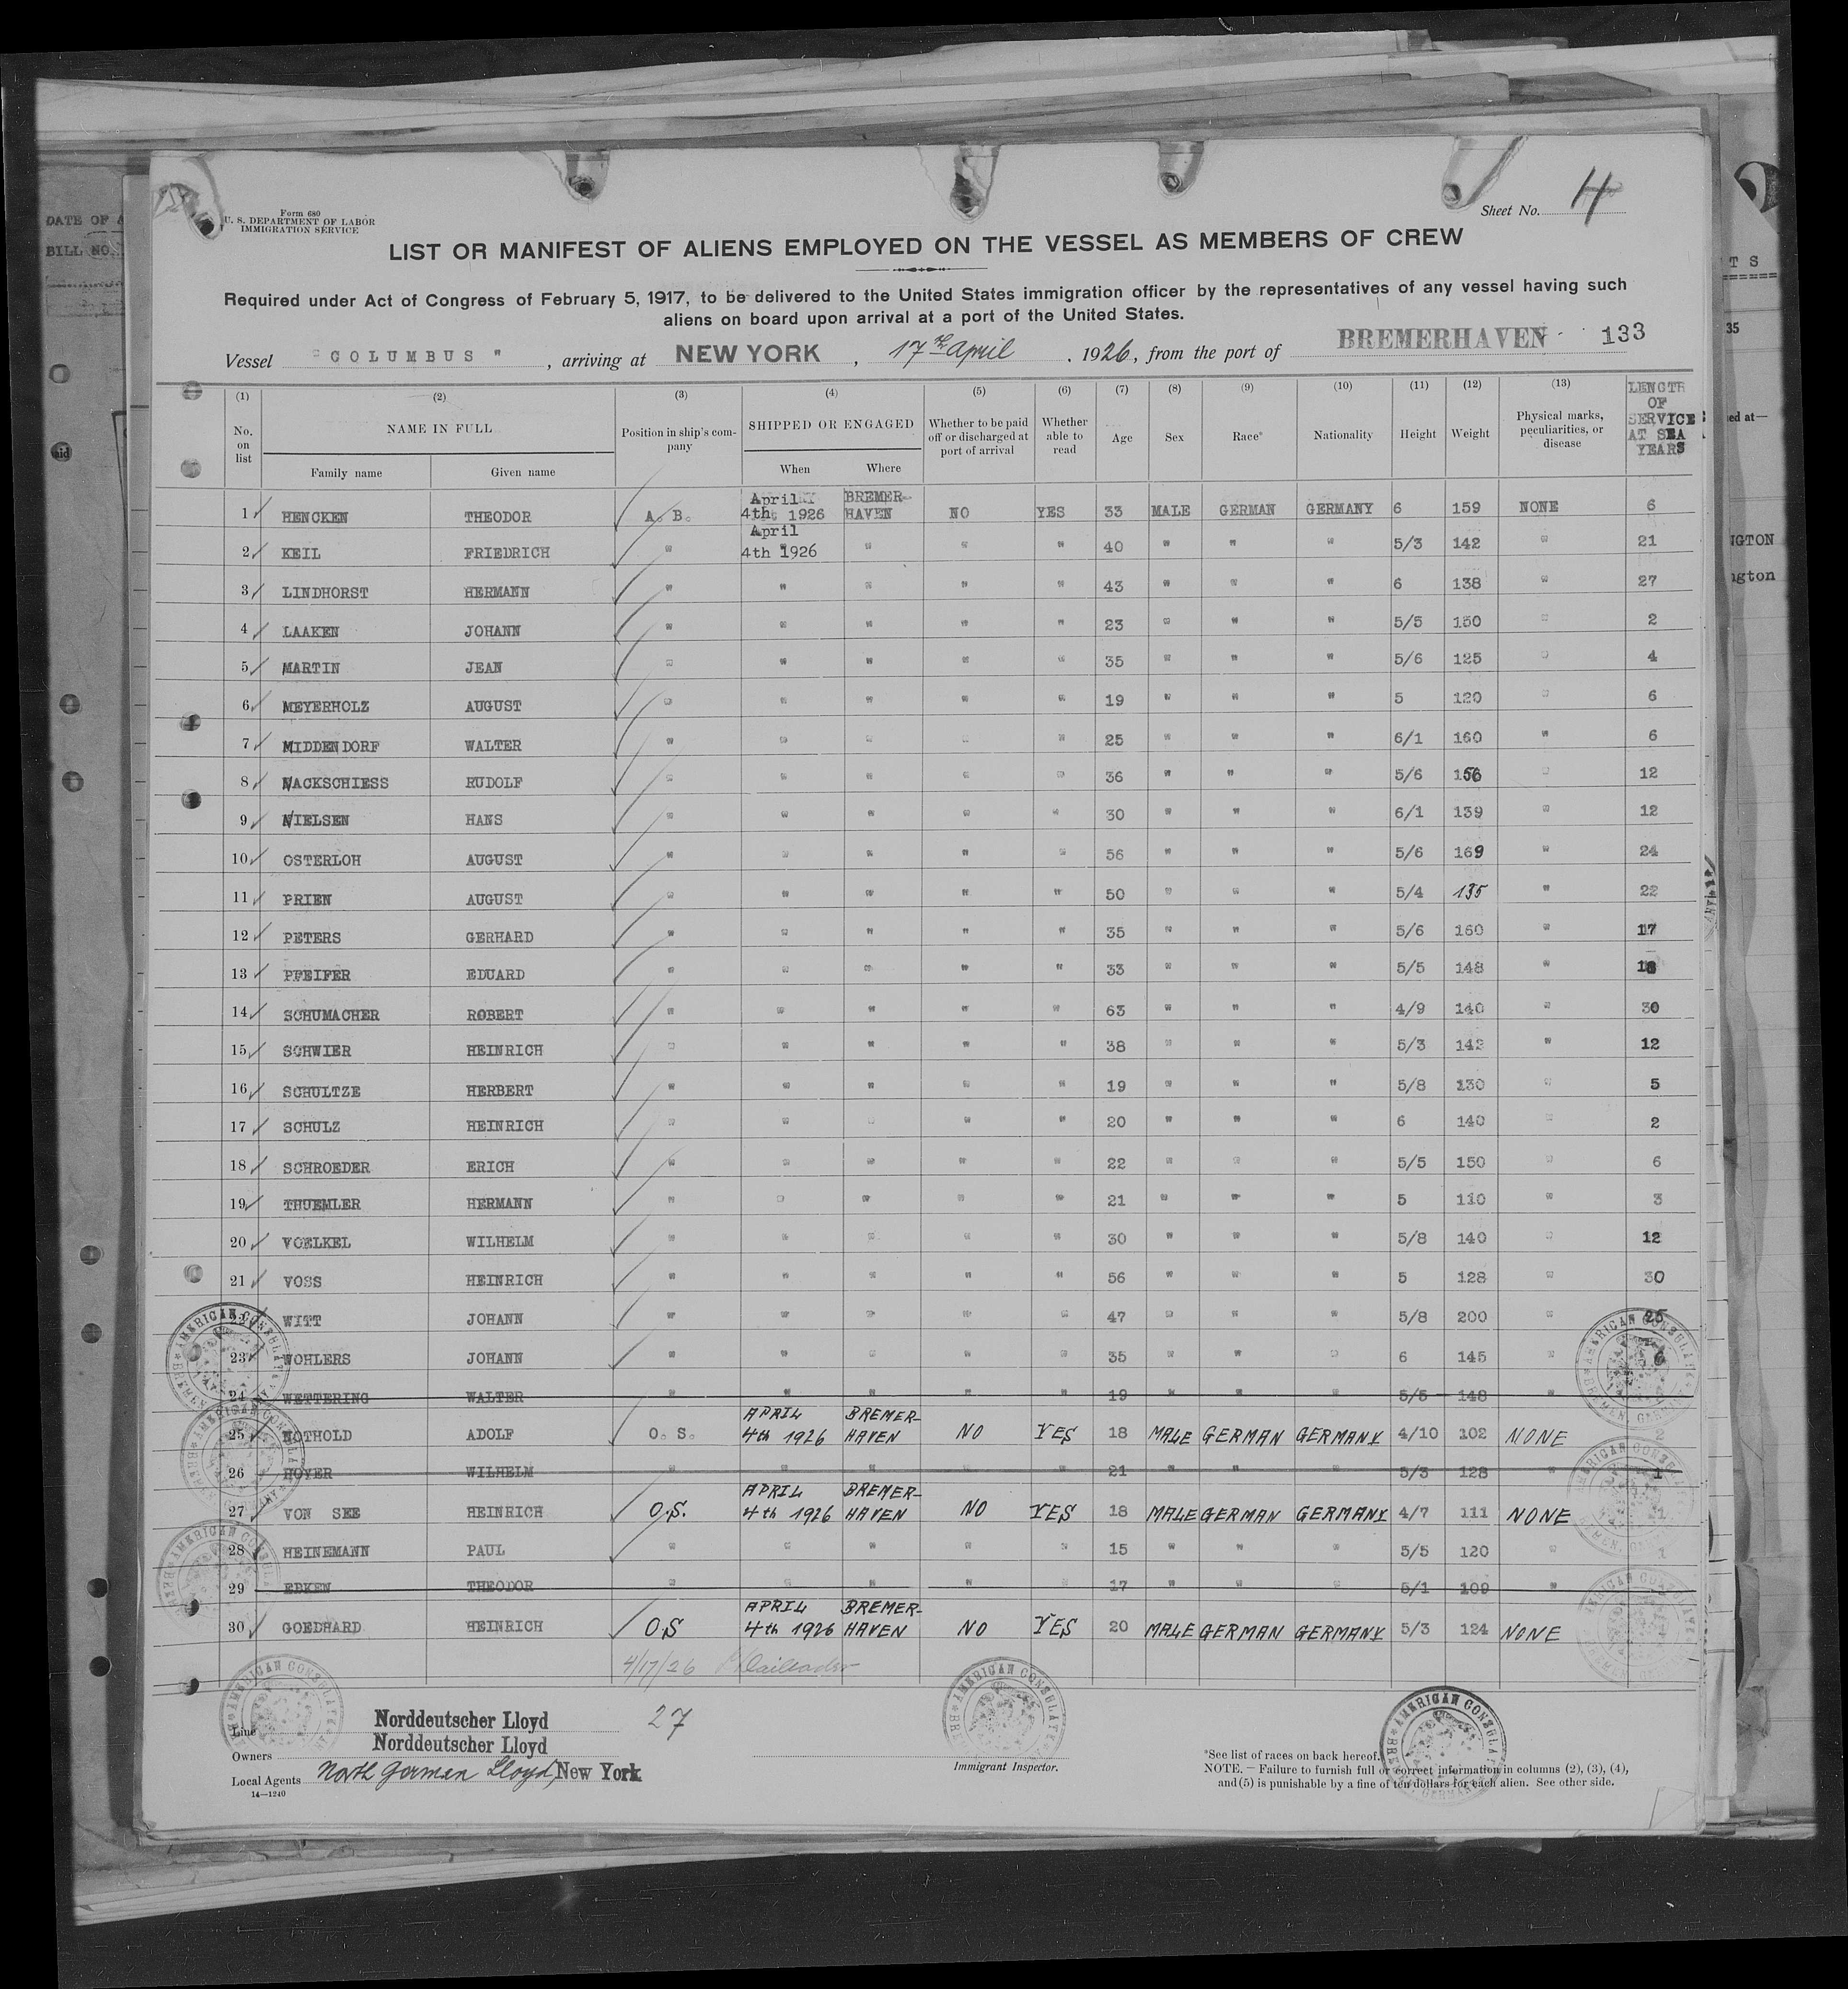 DATE OF A
BILL NO.
Form 680
U. S. DEPARTMENT OF LABOR
IMMIGRATION SERVICE
Sheet No. 4
LIST OR MANIFEST OF ALIENS EMPLOYED ON THE VESSEL AS MEMBERS OF CREW
Required under Act of Congress of February 5, 1917, to be delivered to the United States immigration officer by the representatives of any vessel having such
aliens on board upon arrival at a port of the United States.
Vessel "COLUMBUS", arriving at NEW YORK, 17th April, 1926, from the port of BREMERHAVEN 133
(1) (2) (3) (4) (5) (6) (7) (8) (9) (10) (11) (12) (13)
No. on list NAME IN FULL Position in ship's company SHIPPED OR ENGAGED Whether to be paid off or discharged at port of arrival Whether able to read Age Sex Race* Nationality Height Weight Physical marks, peculiarities, or disease LENGTH OF SERVICE AT SEA YEARS
Family name Given name When Where
1 HENCKEN THEODOR A. B. April 4th 1926 BREMER-HAVEN NO YES 33 MALE GERMAN GERMANY 6 159 NONE 6
2 KEIL FRIEDRICH " April 4th 1926 " " " 40 " " " 5/3 142 " 21
3 LINDHORST HERMANN " " " " " 43 " " " 6 138 " 27
4 LAAKEN JOHANN " " " " " 23 " " " 5/5 150 " 2
5 MARTIN JEAN " " " " " 35 " " " 5/6 125 " 4
6 MEYERHOLZ AUGUST " " " " " 19 " " " 5 120 " 6
7 MIDDENDORF WALTER " " " " " 25 " " " 6/1 160 " 6
8 NACKSCHIESS RUDOLF " " " " " 36 " " " 5/6 156 " 12
9 NIELSEN HANS " " " " " 30 " " " 6/1 139 " 12
10 OSTERLOH AUGUST " " " " " 56 " " " 5/6 169 " 24
11 PRIEN AUGUST " " " " " 50 " " " 5/4 135 " 22
12 PETERS GERHARD " " " " " 35 " " " 5/6 160 " 17
13 PFEIFER EDUARD " " " " " 33 " " " 5/5 148 "
14 SCHUMACHER ROBERT " " " " " 63 " " " 4/9 140 " 30
15 SCHWIER HEINRICH " " " " " 38 " " " 5/3 142 " 12
16 SCHULTZE HERBERT " " " " " 19 " " " 5/8 130 " 5
17 SCHULZ HEINRICH " " " " " 20 " " " 6 140 " 2
18 SCHROEDER ERICH " " " " " 22 " " " 5/5 150 " 6
19 THUEMLER HERMANN " " " " " 21 " " " 5 110 " 3
20 VOELKEL WILHELM " " " " " 30 " " " 5/8 140 " 12
21 VOSS HEINRICH " " " " " 56 " " " 5 128 " 30
22 WITT JOHANN " " " " " 47 " " " 5/8 200 " 25
23 WOHLERS JOHANN " " " " " 35 " " " 6 145 " 6
24 WETTERING WALTER " " " " " 19 " " " 5/5 148 "
25 NOTHOLD ADOLF O. S. APRIL 4th 1926 BREMER-HAVEN NO YES 18 MALE GERMAN GERMANY 4/10 102 NONE 2
26 HOYER WILHELM " " " " " 21 " " " 5/3 128 " 1
27 VON SEE HEINRICH O.S. APRIL 4th 1926 BREMER-HAVEN NO YES 18 MALE GERMAN GERMANY 4/7 111 NONE 1
28 HEINEMANN PAUL " " " " " 15 " " " 5/5 120 " 1
29 ERKEN THEODOR " " " " " 17 " " " 5/1 109 "
30 GOEDHARD HEINRICH O.S APRIL 4th 1926 BREMER-HAVEN NO YES 20 MALE GERMAN GERMANY 5/3 124 NONE
4/17/26
Line Norddeutscher Lloyd 27
Owners Norddeutscher Lloyd
Local Agents North German Lloyd, New York
14—1240
Immigrant Inspector.
*See list of races on back hereof.
NOTE. — Failure to furnish full or correct information in columns (2), (3), (4),
and (5) is punishable by a fine of ten dollars for each alien. See other side.
AMERICAN CONSULATE